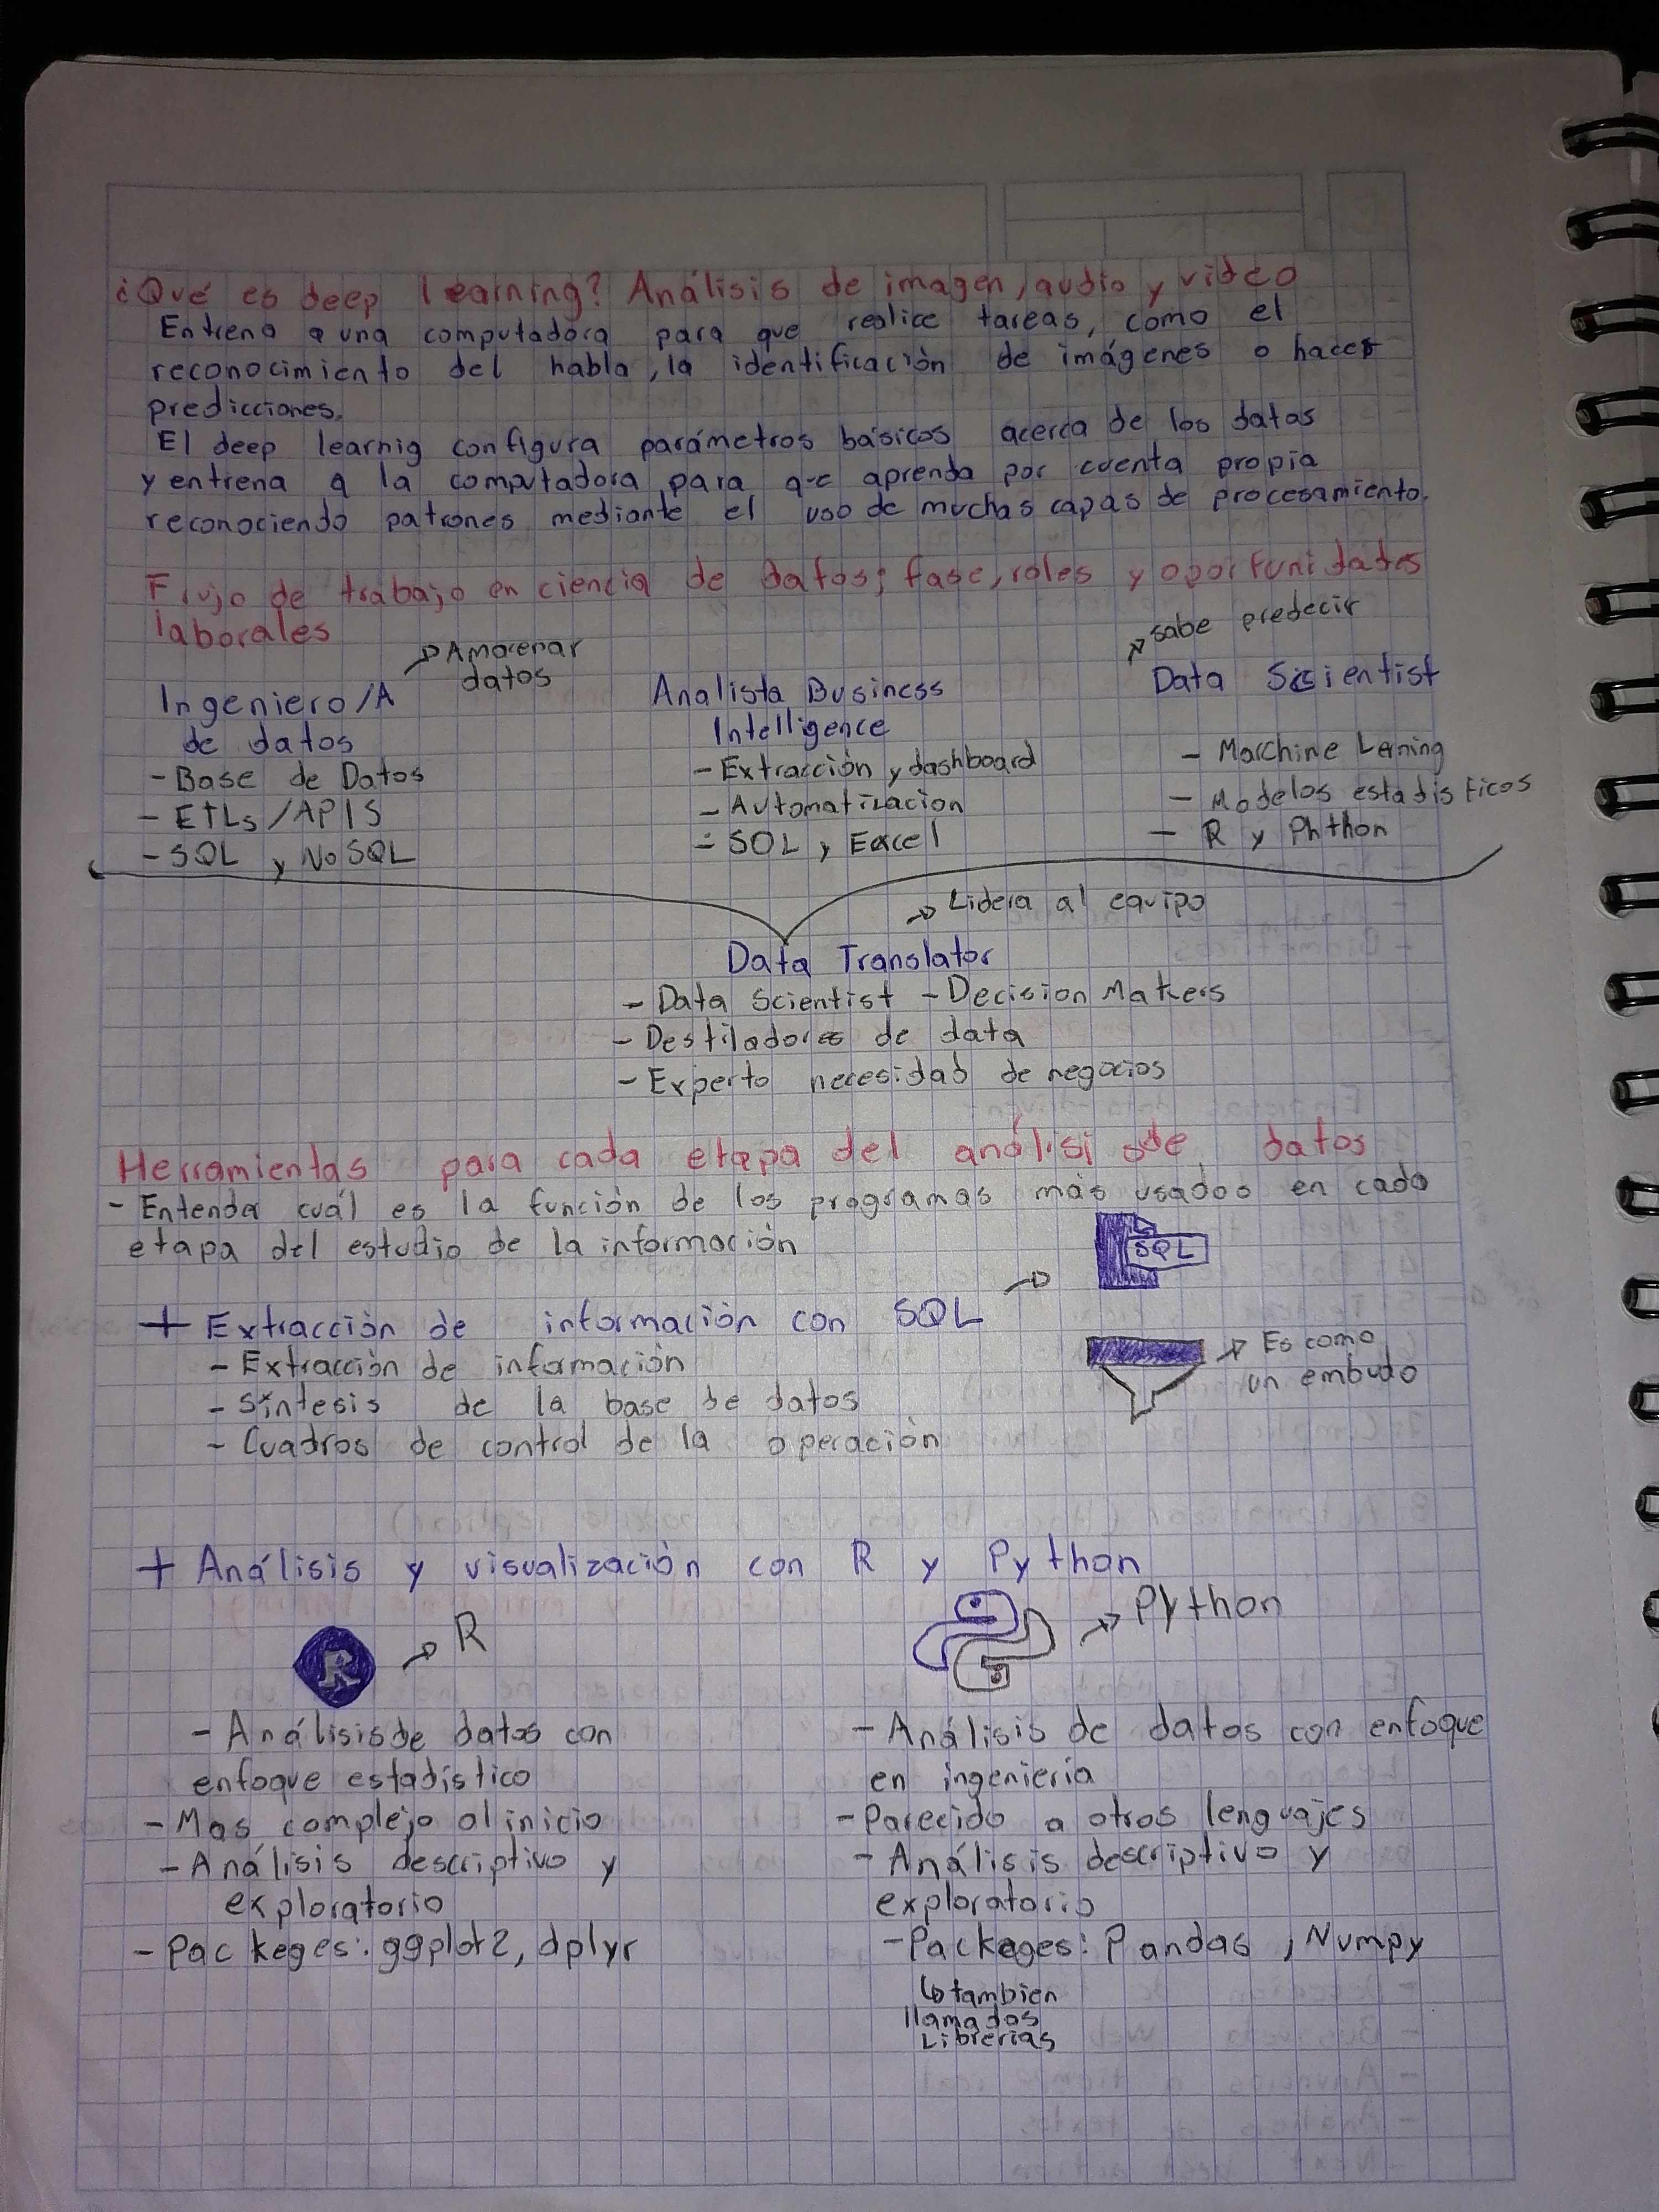 ¿Qué es deep learning? Análisis de imagen, audio y video
Entrena a una computadora para que realice tareas, como el
reconocimiento del habla, la identificación de imágenes o hacer
predicciones.
El deep learnig configura parámetros básicos acerca de los datos
y entrena a la computadora para que aprenda por cuenta propia
reconociendo patrones mediante el uso de muchas capas de procesamiento.
Flujo de trabajo en ciencia de datos; fase, roles y oportunidades
laborales
Ingeniero/A
de datos
Amacenar
datos
- Base de Datos
- ETLs/APIS
- SQL y NoSQL
Analista Business
Intelligence
- Extracción y dashboard
- Automatizacion
- SQL y Excel
sabe predecir
Data Scientist
- Marchine Lerning
- Modelos estadísticos
- R y Phthon
Lidera al equipo
Data Translator
- Data Scientist - Decision Makers
- Destiladores de data
- Experto necesidad de negocios
Herramientas para cada etapa del análisis de datos
- Entender cuál es la función de los programas más usados en cada
etapa del estudio de la información
SQL
+ Extracción de información con SQL
- Extracción de información
- Síntesis de la base de datos
- Cuadros de control de la operación
Es como
un embudo
+ Análisis y visualización con R y Python
R
R
- Análisis de datos con
enfoque estadístico
- Mas complejo al inicio
- Análisis descriptivo y
exploratorio
- Packeges: ggplot2, dplyr
Python
- Análisis de datos con enfoque
en ingeniería
- Parecido a otros lenguajes
- Análisis descriptivo y
exploratorio
- Packages: Pandas, Numpy
tambien
llamados
Librerias